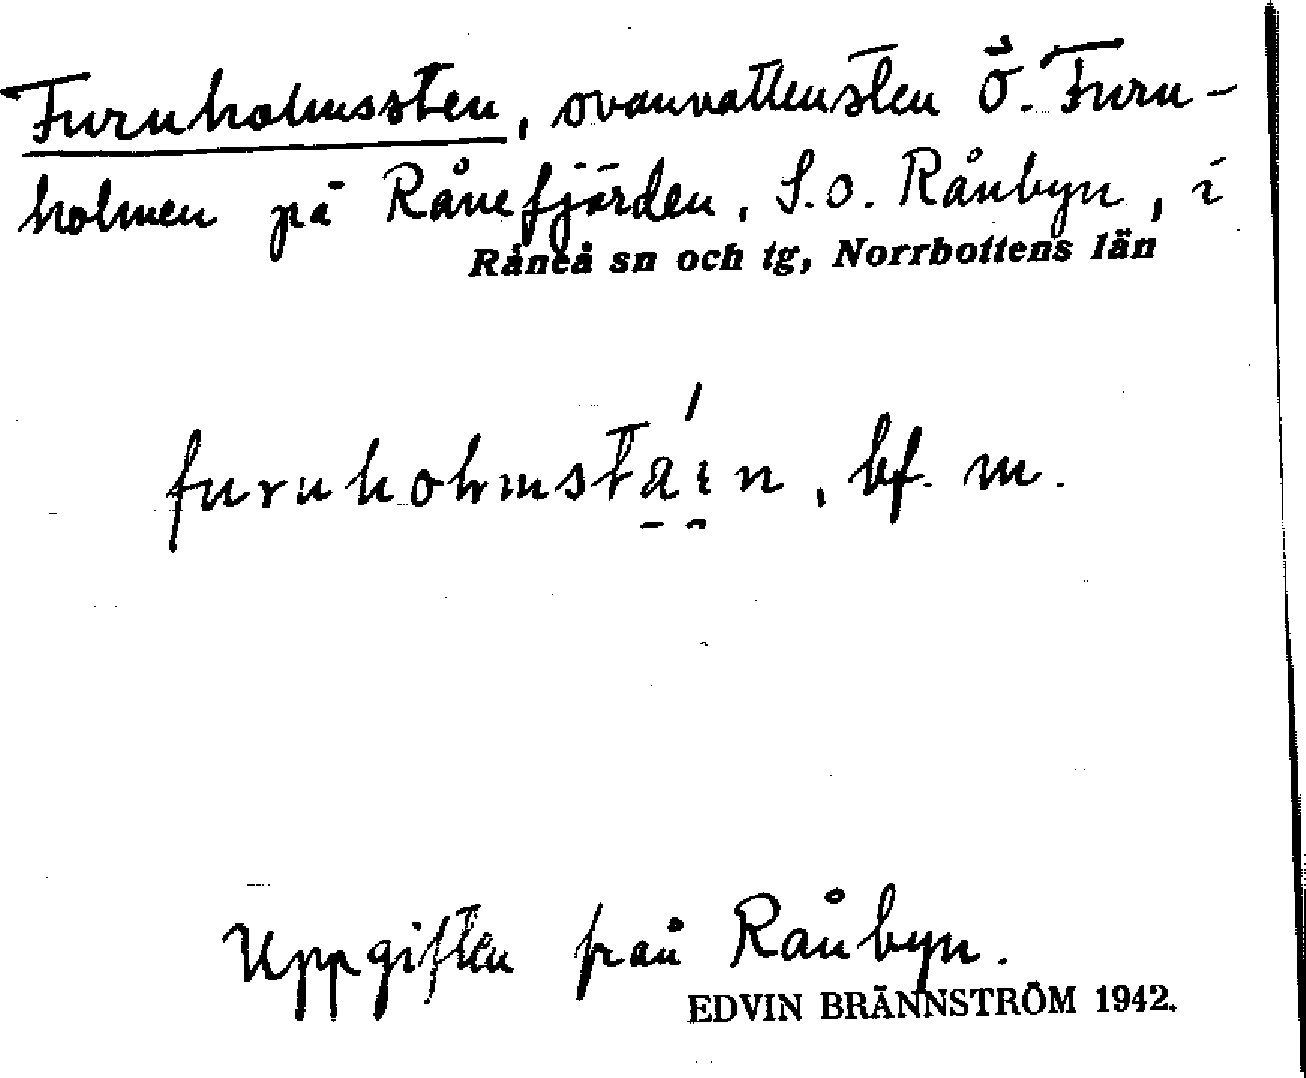 Furuholmssten, ovanvattensten Ö. Furu-
holmen på Rånefjärden, S.o. Rånbyn, i
Råneå sn och tg, Norrbottens län
furuholmstáin, bf. m.
Uppgiften från Rånbyn.
EDVIN BRÄNNSTRÖM 1942.